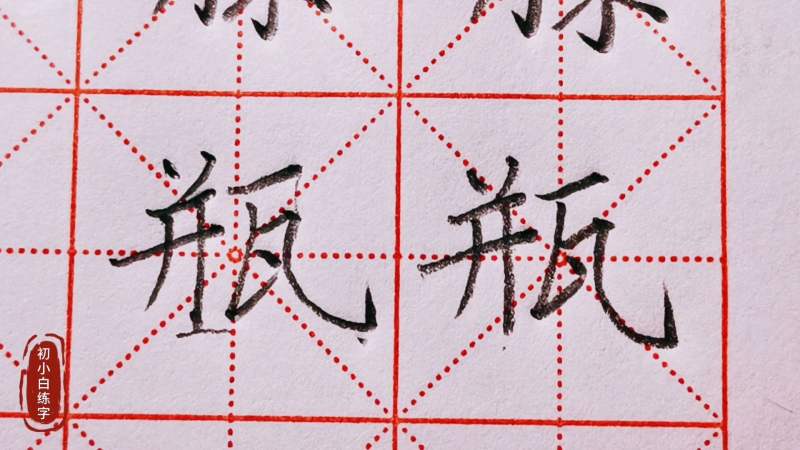 瓶 瓶
初小白练字